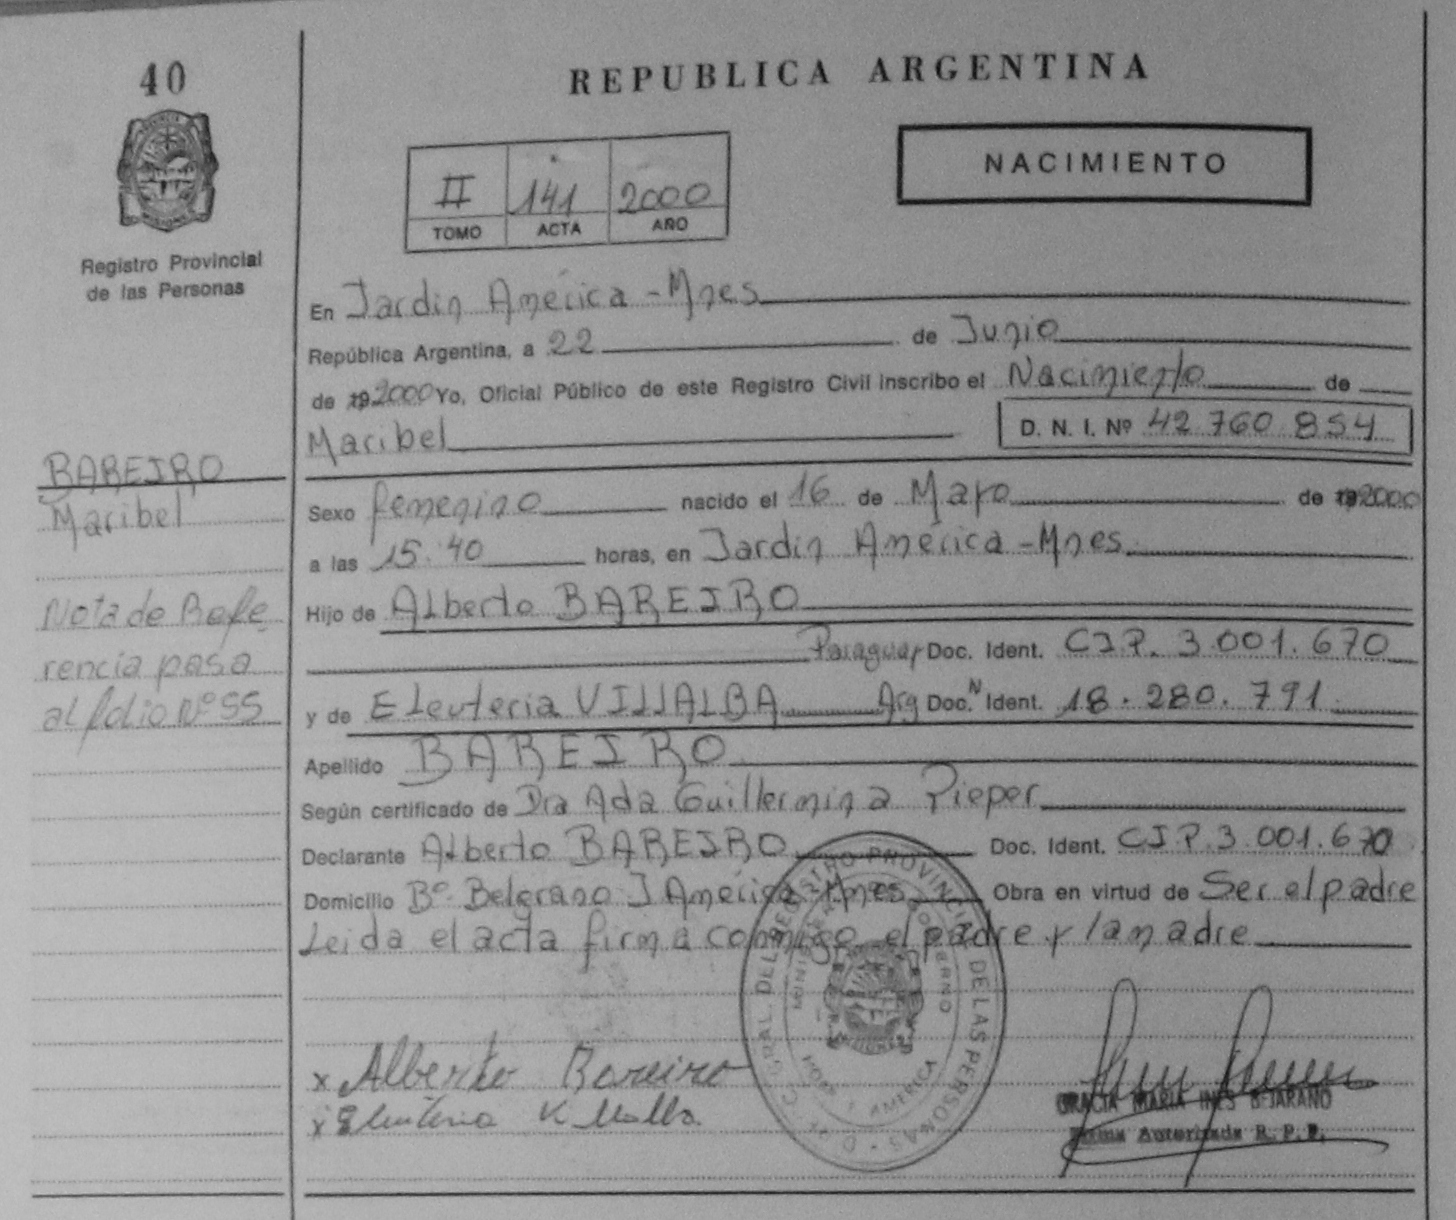 40
REPUBLICA ARGENTINA
NACIMIENTO
II 141 2000
TOMO ACTA AÑO
Registro Provincial
de las Personas
En Jardin América - Mnes
República Argentina, a 22 de Junio
de 19 2000 Yo, Oficial Público de este Registro Civil inscribo el Nacimiento de
Maribel D. N. I. Nº 42 760 854
BAREIRO
Maribel
Sexo femenino nacido el 16 de Mayo de 19 2000
a las 15:40 horas, en Jardin América - Mnes
Hijo de Alberto BAREIRO
Nota de Refe
rencia pasa
al folio Nº 55
Paraguay Doc. Ident. C.I.P. 3.001.670
y de Eleuteria VILLALBA Arg Doc. N Ident. 18.280.791
Apellido BAREIRO
Según certificado de Dra Ada Guillermina Pieper
Declarante Alberto BAREIRO Doc. Ident. C.I.P. 3.001.670
Domicilio Bº Belgrano J América - Mnes Obra en virtud de Ser el padre
Leida el acta firma conmigo el padre y la madre
GRAL. DEL REGISTRO PROVINCIAL DE LAS PERSONAS
MINISTERIO GOBIERNO
AMERICA
MISIONES
x Alberto Bareiro
x Eleuteria Villalba
GRACIA MARIA INES BEJARANO
Firma Autorizada R. P. P.